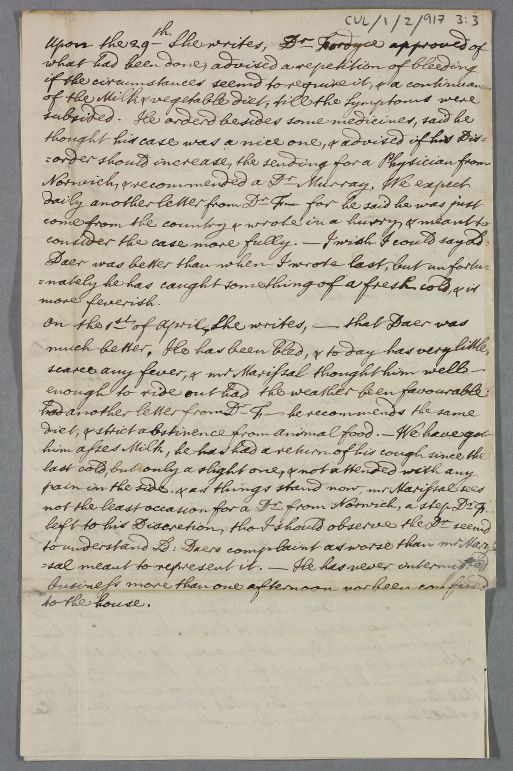 CUL/1/2/917 3:3
Upon the 29th She writes, Dr Fordyce approved of
what had been done, advised a repetition of bleeding
if the circumstances seemd to require it, & a continuance
of the Milk & vegetable diet, till the Symptoms were
subsided. He orderd besides some medicines, said he
thought his case was a nice one, & advised if his Dis=
=order should increase, the sending for a Physician from
Norwich, & recommended a Dr Murray. We expect
daily another letter from Dr F— for he said he was just
come from the country & wrote in a hurry, & meant to
consider the case more fully. — I wish I could say Ld:
Daer was better than when I wrote last, but unfortu=
=nately he has caught something of a fresh cold, & is
more feverish.
On the 1st of April, She writes, — that Daer was
much better, He has been bled, & to day has very little,
scarce any fever, & mr Marifsal thought him well
enough to ride out had the weather been favourable.
had another letter from Dr F— he recommends the same
diet, & strict abstinence from animal food. — We have got
him afses Milk, he has had a return of his cough since the
last cold, but only a slight one, & not attended with any
pain in the side, & as things stand now, mr Marifsal sees
not the least occasion for a Dr from Norwich, a step Dr F.
left to his Discretion, tho I should observe the Dr seemd
to understand Ld: Daers complaint as worse than mr Marif=
=sal meant to represent it. — He has never intermitted
businefs more than one afternoon nor been confined
to the house.